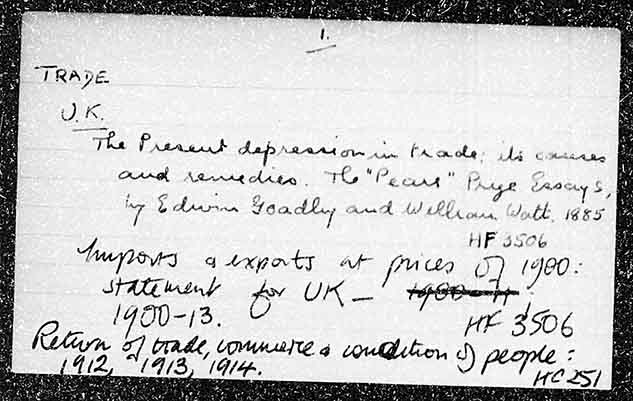 1.
TRADE
U.K.
The Present depression in trade; its causes
and remedies. The "Pears" Prize Essays,
by Edwin Goadby and William Watt. 1885
HF 3506
Imports & exports at prices of 1900:
statement for UK –
1900-13. HF 3506
Return of trade, commerce & condition of people:
1912, 1913, 1914. HC 251